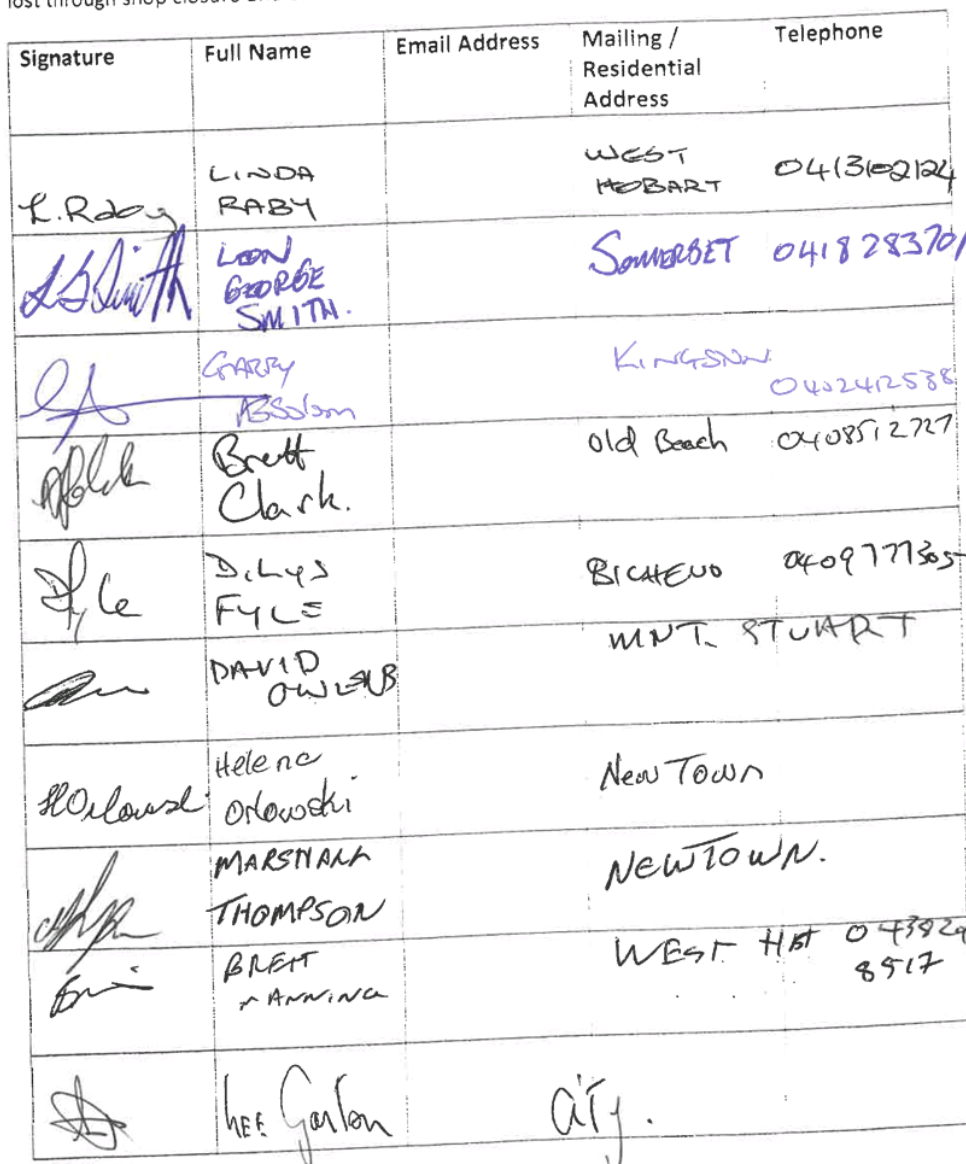 Signature Full Name Email Address Mailing / Telephone
Residential
Address
L. Raby LINDA RABY WEST HOBART 0413102124
LEON GEORGE SMITH. SOMERSET 0418 283701
GARRY ABSolom 0402412538
Brett Clark. Old Beach 0408512727
DiLyS FYLE BICHENO 0409777305
DAVID OWENS MNT. STUART
HOrlowski Helena Orlowski New Town
MARSHALL THOMPSON NEWTOWN.
BRETT MANNING WEST HBT 043829
8517
LEE CITY.